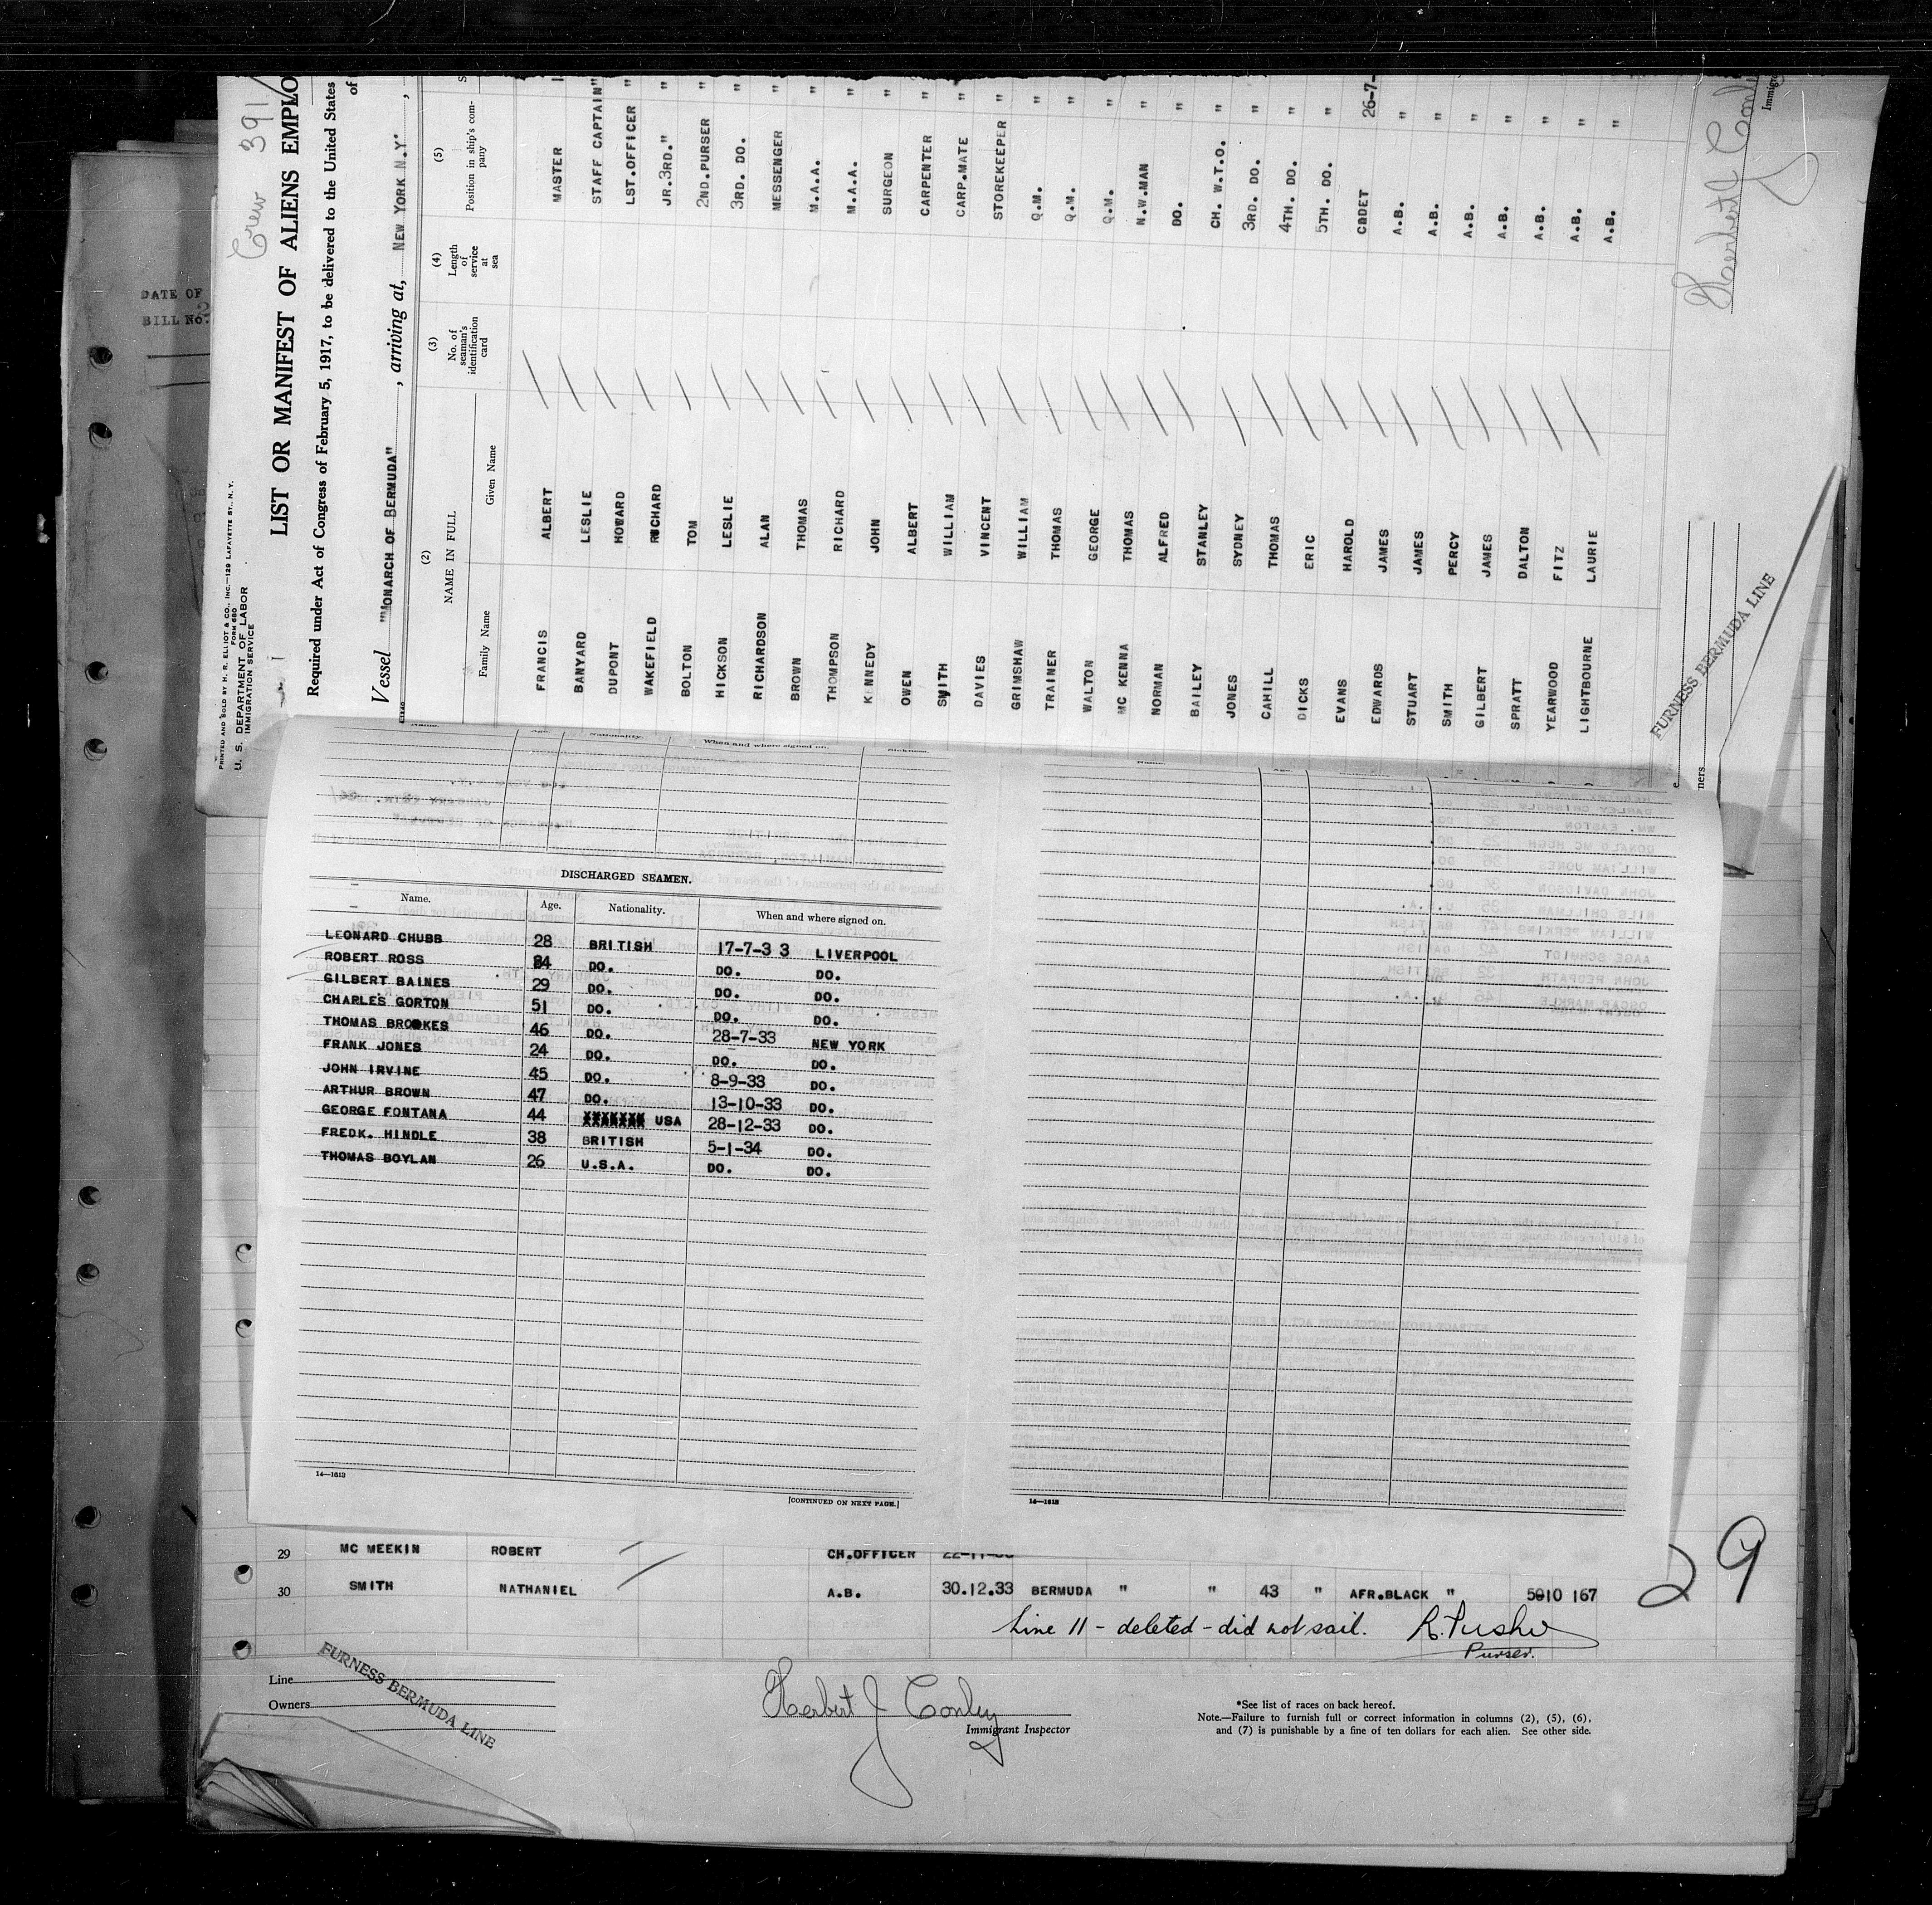 Crew 391
DATE OF
BILL No.
PRINTED AND SOLD BY H. R. ELLIOT & CO., INC.—129 LAFAYETTE ST., N. Y.
FORM 680
U. S. DEPARTMENT OF LABOR
IMMIGRATION SERVICE
LIST OR MANIFEST OF ALIENS EMPLO
Required under Act of Congress of February 5, 1917, to be delivered to the United States
of
Vessel "MONARCH OF BERMUDA" , arriving at, NEW YORK N.Y. ,
(2) (3) (4) (5)
NAME IN FULL No. of seaman's identification card Length of service at sea Position in ship's company
Family Name Given Name
FRANCIS ALBERT MASTER
BANYARD LESLIE STAFF CAPTAIN "
DUPONT HOWARD 1ST.OFFICER "
WAKEFIELD RICHARD JR.3RD." "
BOLTON TOM 2ND.PURSER "
HICKSON LESLIE 3RD. DO. "
RICHARDSON ALAN MESSENGER "
BROWN THOMAS M.A.A. "
THOMPSON RICHARD M.A.A. "
KENNEDY JOHN SURGEON "
OWEN ALBERT CARPENTER "
SMITH WILLIAM CARP.MATE "
DAVIES VINCENT STOREKEEPER "
GRIMSHAW WILLIAM Q.M. "
TRAINER THOMAS Q.M. "
WALTON GEORGE Q.M. "
MC KENNA THOMAS N.W.MAN "
NORMAN ALFRED DO. "
BAILEY STANLEY CH. W.T.O. "
JONES SYDNEY 3RD. DO. "
CAHILL THOMAS 4TH. DO. "
DICKS ERIC 5TH. DO. "
EVANS HAROLD CADET 26-7-
EDWARDS JAMES A.B. "
STUART JAMES A.B. "
SMITH PERCY A.B. "
GILBERT JAMES A.B. "
SPRATT DALTON A.B. "
YEARWOOD FITZ A.B. "
LIGHTBOURNE LAURIE A.B. "
FURNESS BERMUDA LINE
Herbert J Conl
Immigr
Name. Age. Nationality. When and where signed on. Sickness.
DISCHARGED SEAMEN.
Name. Age. Nationality. When and where signed on.
LEONARD CHUBB 28 BRITISH 17-7-3 3 LIVERPOOL
ROBERT ROSS 34 DO. DO. DO.
GILBERT BAINES 29 DO. DO. DO.
CHARLES GORTON 51 DO. DO. DO.
THOMAS BROOKES 46 DO. 28-7-33 NEW YORK
FRANK JONES 24 DO. DO. DO.
JOHN IRVINE 45 DO. 8-9-33 DO.
ARTHUR BROWN 47 DO. 13-10-33 DO.
GEORGE FONTANA 44 XXXXXXX USA 28-12-33 DO.
FREDK. HINDLE 38 BRITISH 5-1-34 DO.
THOMAS BOYLAN 26 U.S.A. DO. DO.
14—1613
[CONTINUED ON NEXT PAGE.]
14—1613
29 MC MEEKIN ROBERT CH.OFFICER
30 SMITH NATHANIEL A.B. 30.12.33 BERMUDA " " 43 " AFR.BLACK " 5010 167
29
Line 11 - deleted - did not sail.
Purser.
Line
Owners
FURNESS BERMUDA LINE
Herbert J Conley
Immigrant Inspector
*See list of races on back hereof.
Note.—Failure to furnish full or correct information in columns (2), (5), (6),
and (7) is punishable by a fine of ten dollars for each alien. See other side.